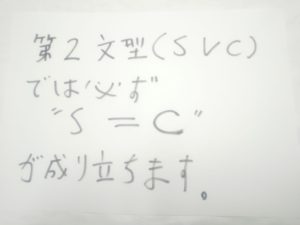 第2文型(SVC)
では必ず
"S=C"
が成り立ちます。